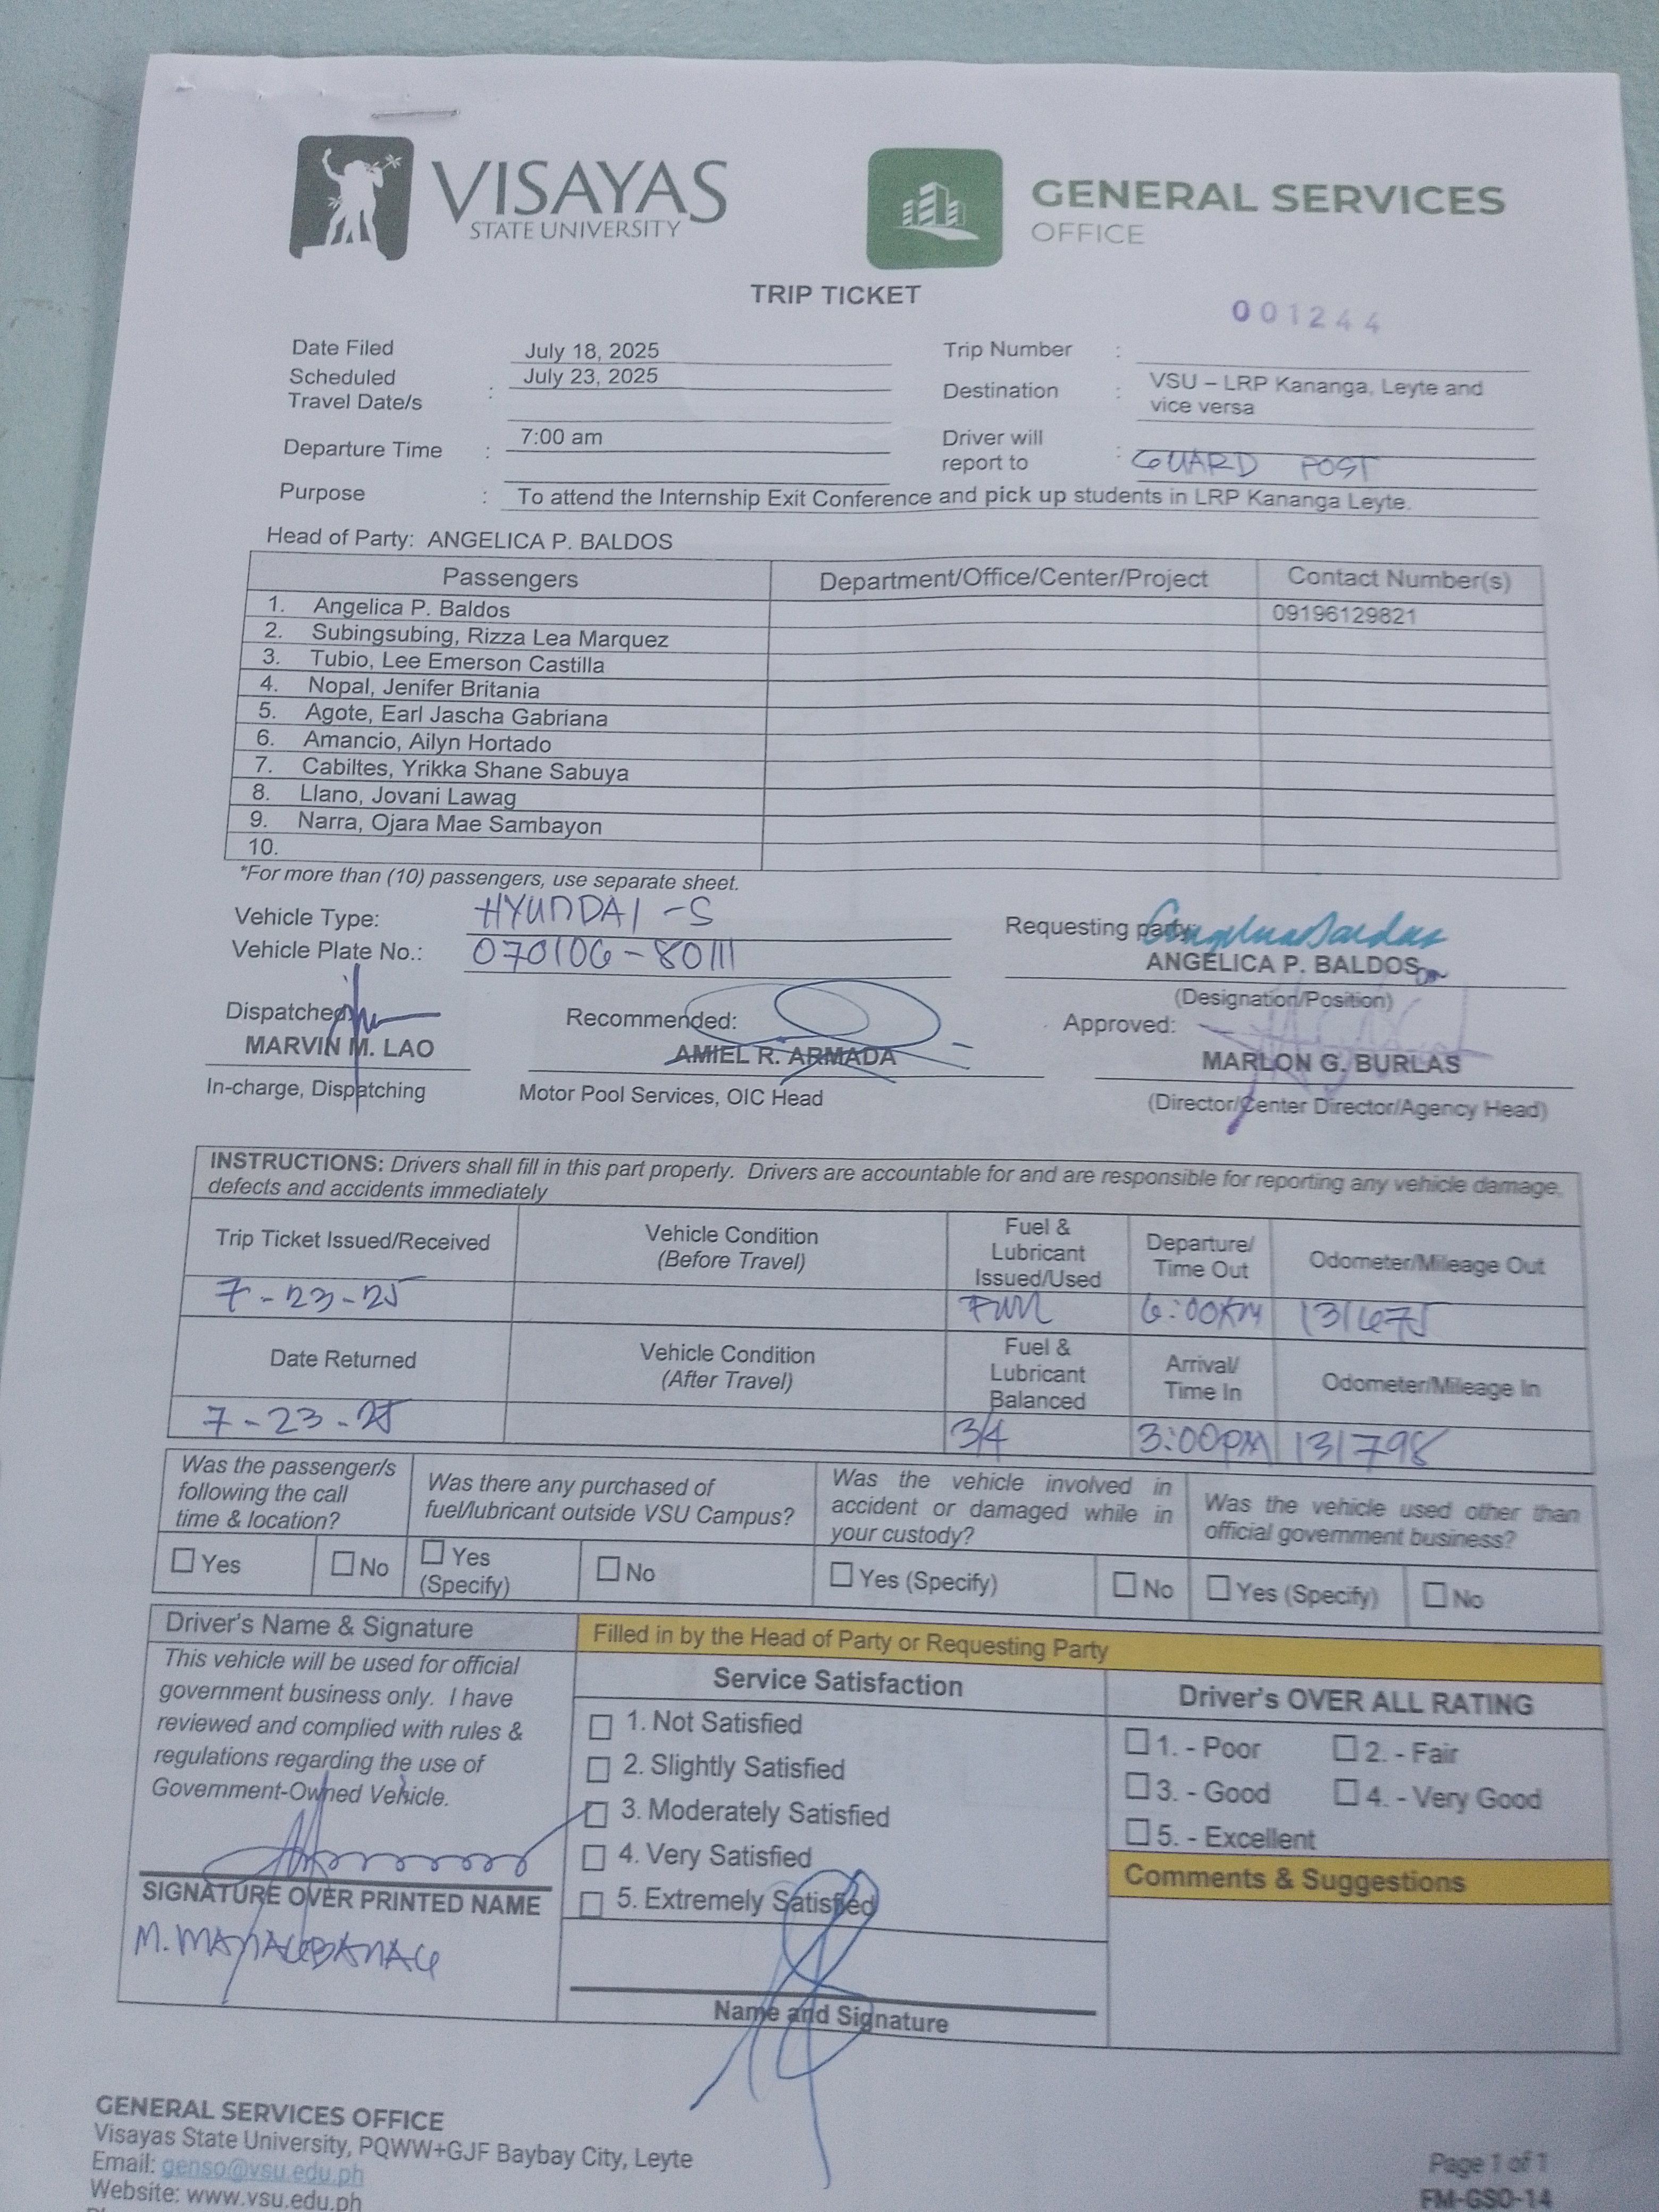 VISAYAS
STATE UNIVERSITY
GENERAL SERVICES
OFFICE
TRIP TICKET
001244
Date Filed July 18, 2025
Trip Number :
Scheduled Travel Date/s : July 23, 2025
Destination : VSU – LRP Kananga, Leyte and
vice versa
Departure Time : 7:00 am
Driver will report to : GUARD POST
Purpose : To attend the Internship Exit Conference and pick up students in LRP Kananga Leyte.
Head of Party: ANGELICA P. BALDOS
Passengers Department/Office/Center/Project Contact Number(s)
1. Angelica P. Baldos 09196129821
2. Subingsubing, Rizza Lea Marquez
3. Tubio, Lee Emerson Castilla
4. Nopal, Jenifer Britania
5. Agote, Earl Jascha Gabriana
6. Amancio, Ailyn Hortado
7. Cabiltes, Yrikka Shane Sabuya
8. Llano, Jovani Lawag
9. Narra, Ojara Mae Sambayon
10.
*For more than (10) passengers, use separate sheet.
Vehicle Type: HYUNDAI -S
Requesting party:
Vehicle Plate No.: 070106-80111
ANGELICA P. BALDOS
(Designation/Position)
Dispatched:
Recommended:
Approved:
MARVIN M. LAO
AMIEL R. ARMADA
MARLON G. BURLAS
In-charge, Dispatching
Motor Pool Services, OIC Head
(Director/Center Director/Agency Head)
INSTRUCTIONS: Drivers shall fill in this part properly. Drivers are accountable for and are responsible for reporting any vehicle damage,
defects and accidents immediately
Trip Ticket Issued/Received
Vehicle Condition
(Before Travel)
Fuel &
Lubricant
Issued/Used
Departure/
Time Out
Odometer/Mileage Out
7-23-25 Full 6:00AM 131675
Date Returned
Vehicle Condition
(After Travel)
Fuel &
Lubricant
Balanced
Arrival/
Time In
Odometer/Mileage In
7-23-25 3/4 3:00PM 131798
Was the passenger/s
following the call
time & location?
Was there any purchased of
fuel/lubricant outside VSU Campus?
Was the vehicle involved in
accident or damaged while in
your custody?
Was the vehicle used other than
official government business?
Yes No Yes (Specify) No Yes (Specify) No Yes (Specify) No
Driver's Name & Signature
This vehicle will be used for official
government business only. I have
reviewed and complied with rules &
regulations regarding the use of
Government-Owned Vehicle.
SIGNATURE OVER PRINTED NAME
Filled in by the Head of Party or Requesting Party
Service Satisfaction
1. Not Satisfied
2. Slightly Satisfied
3. Moderately Satisfied
4. Very Satisfied
5. Extremely Satisfied
Name and Signature
Driver's OVER ALL RATING
1. - Poor 2. - Fair
3. - Good 4. - Very Good
5. - Excellent
Comments & Suggestions
GENERAL SERVICES OFFICE
Visayas State University, PQWW+GJF Baybay City, Leyte
Email: genso@vsu.edu.ph
Website: www.vsu.edu.ph
Page 1 of 1
FM-GSO-14